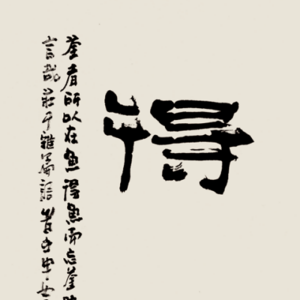 得
荃者所以在魚得魚而忘荃
言哉莊子雜篇語